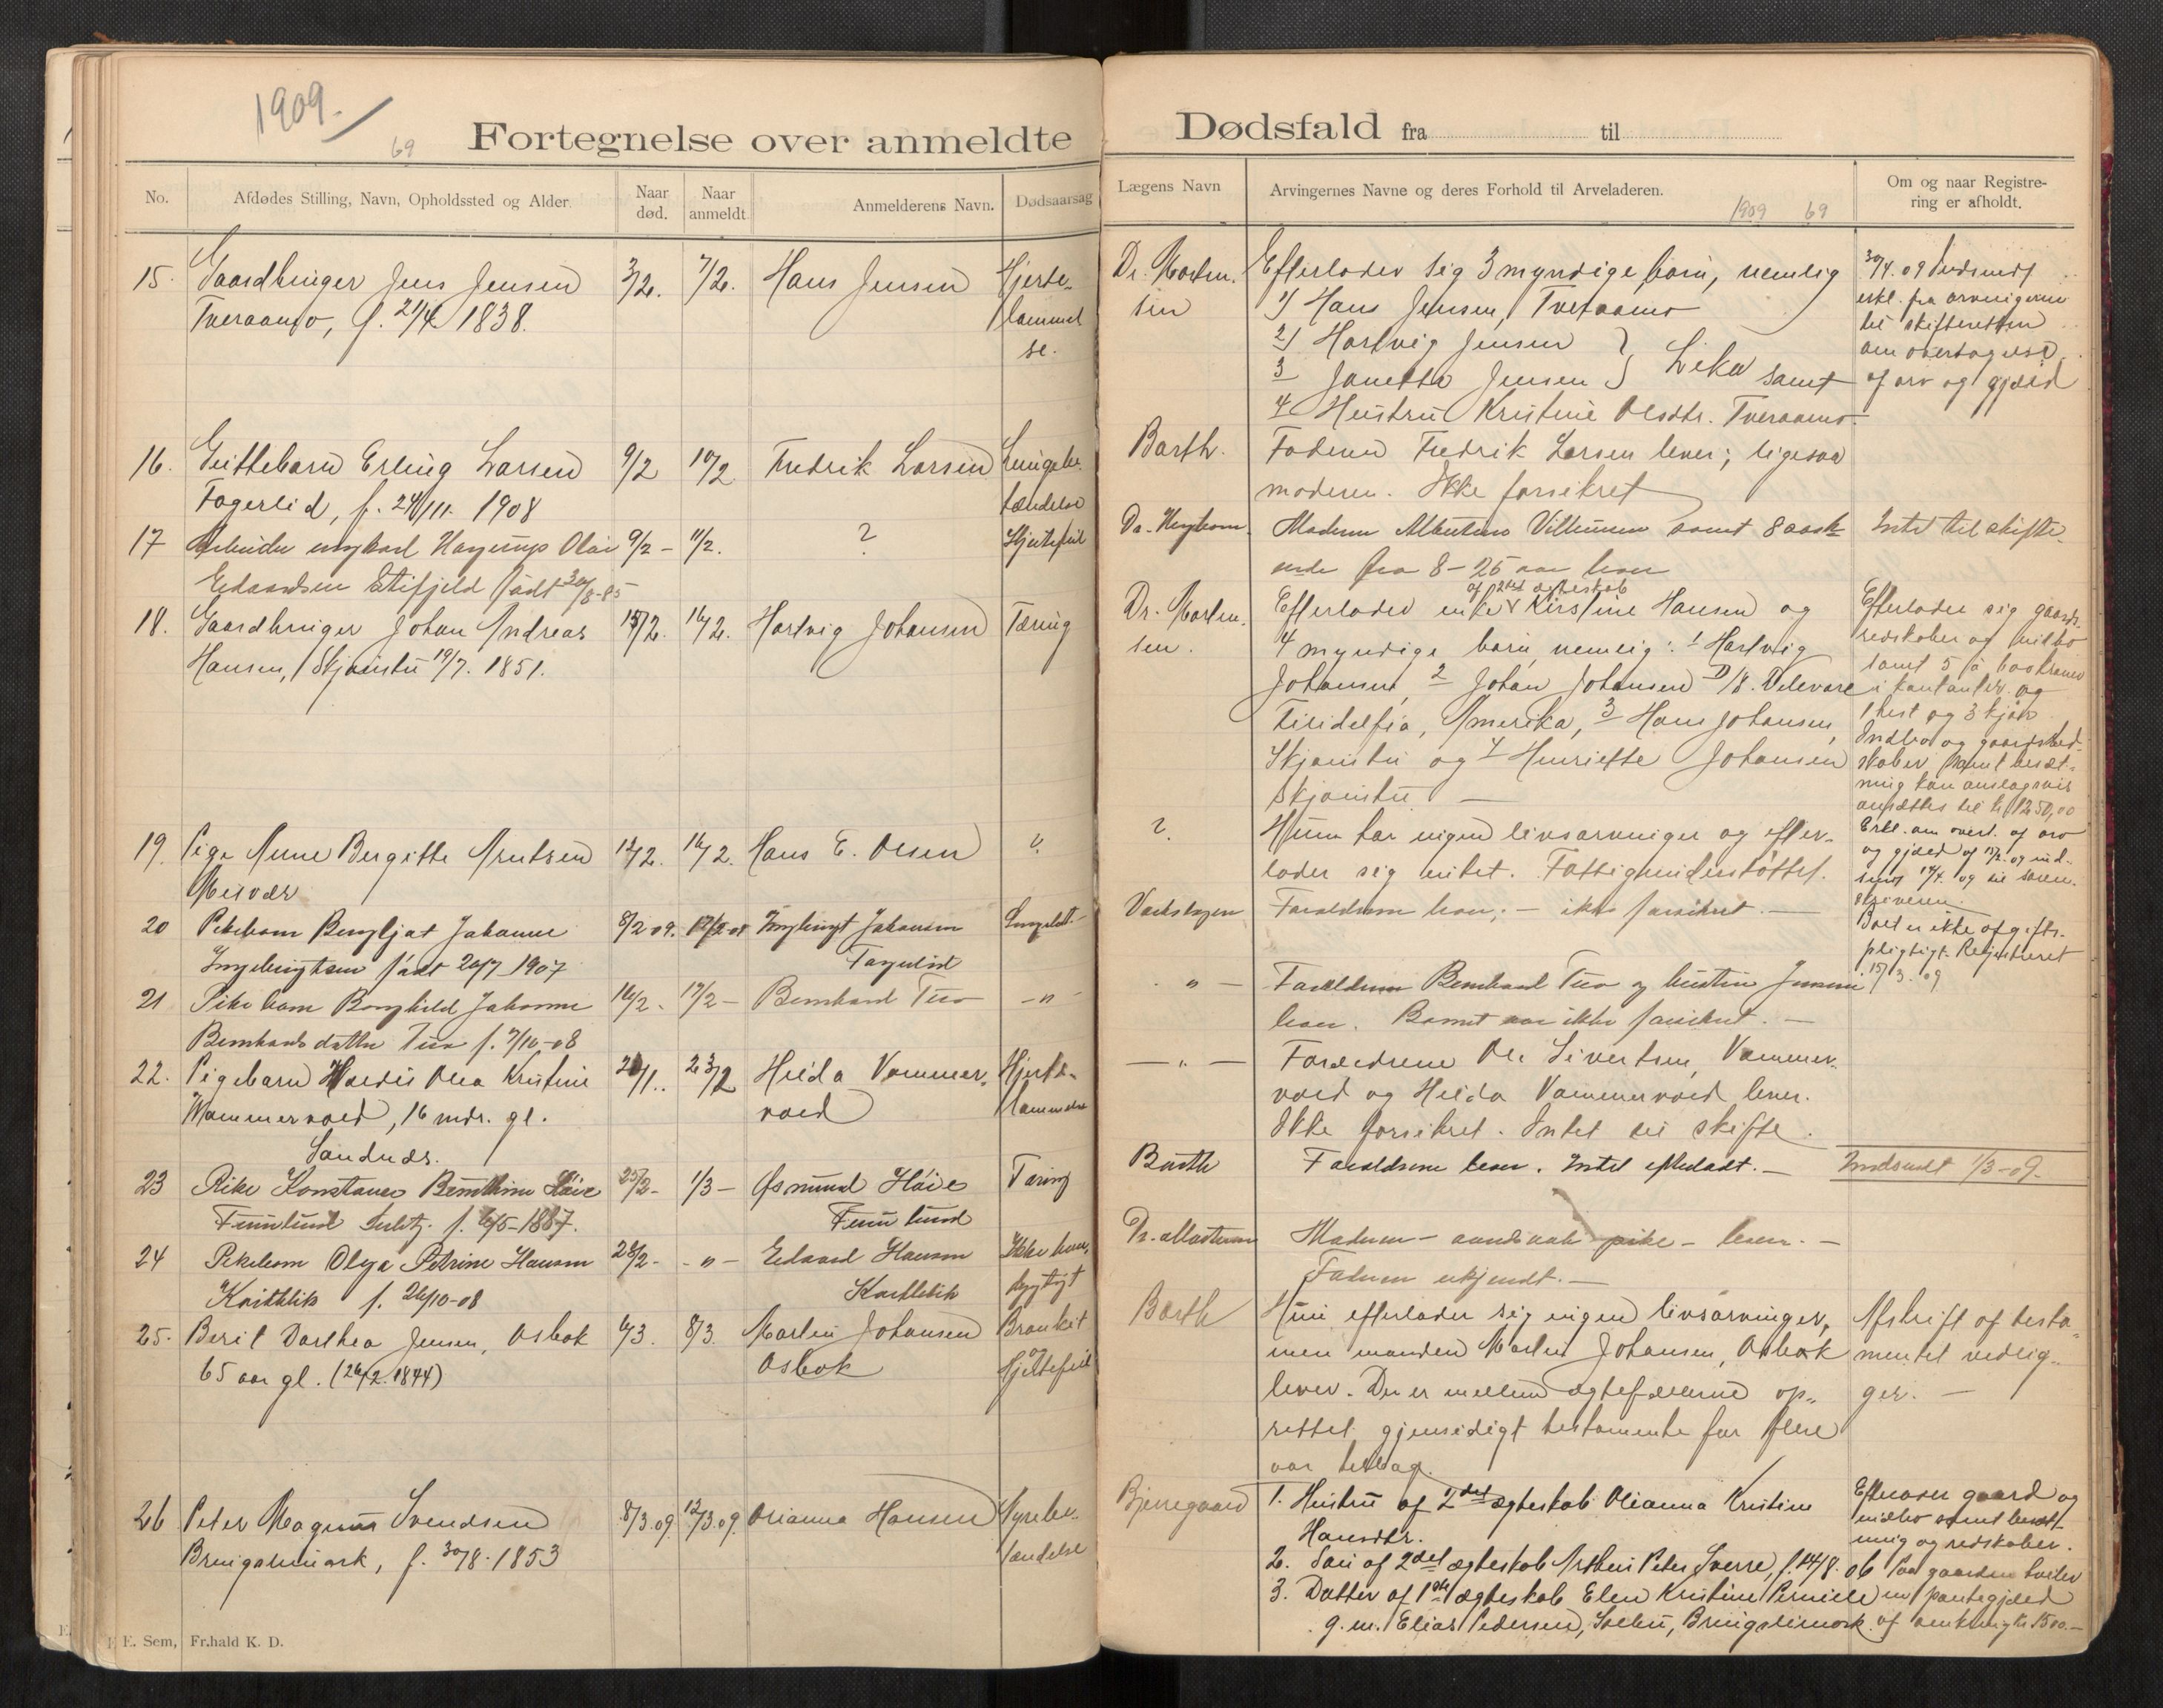 1909.
69
Fortegnelse over anmeldte
No.
Afdødes Stilling, Navn, Opholdssted og Alder.
Naar død.
Naar anmeldt
Anmelderens Navn.
Dødsaarsag
15. Gaardbruger Jens Jensen 3/2. 7/2. Hans Jensen Hjerte-
Tveraamo, f. 21/4 1838. lammel
se.
16. Guttebarn Erling Larsen 9/2 10/2 Fredrik Larsen Lungebe-
Fagerlid, f. 24/111. 1908 tændelse
17 Arbeider ungkarl Olai 9/2 - 11/2. ? Hjertefeil
Edvardsen født 30/8-85
18. Gaardbruger Johan Andreas 15/2. 16/2. Hartvig Johansen Tæring
Hansen, 19/7. 1851.
19. Pige Anne Bergitte Arntsen 12/2. 16/2. Hans E. Olsen
20 Pikebarn Bergljot Johanne 8/2 09. Ingebrigt Johansen
Ingebrigtsen født 26/7 1907 Fagerlid
21 Pikebarn Borghild Johanne 16/2 - 17/2 - Bernhard -"-
Bernhardsdatter f. 7/10-08
22. Pigebarn Olea Kristine 23/2 Hilda Vammer- Hjerte-
Vammervold, 16 mdr. gl. vold lammelse
Sandnes.
23 Pike Konstance Høie 25/2 - 1/3 - Osmund Høie Tæring
f. 6/5-1887.
24 Pikebarn Olga Petrine Hansen 28/2 - -"- Edvard Hansen
f. 26/10-08
25. Berit Dorthea Jensen, Osbak 6/3. 8/3. Martin Johansen Bronkit
65 aar gl. (26/2.1844) Osbak og
Hjertefeil
26 Peter Magnus Svendsen 8/3.09. 12/3.09. Olianna Hansen Nyrebe-
f. 30/8.1853 tændelse
E. Sem, Fr.hald K. D.
Dødsfald fra til
Lægens Navn
Arvingernes Navne og deres Forhold til Arveladeren.
1909 69
Om og naar Registre-
ring er afholdt.
Dr. Morten- Efterlader sig 3 myndige børn, nemlig 30/4.09 Indsendt
sen 1) Hans Jensen, Tveraamo erkl. fra arvingerne
2) Hartvig Jensen til skifteretten
3 Janetta Jensen } Leka samt om overtagelse
af arv og gjæld
4 Hustru Kristine Olsdtr. Tveraamo.
Barth. Faderen Fredrik Larsen lever; ligesaa
moderen. Ikke forsikret
Dr. Moderen samt 8 søsk- Intet til skifte.
ende fra 8-25 aar lever
af 2det ægteskab
Dr. Morten- Efterlader enke Kirstine Hansen og Efterlader sig gaards-
sen. 4 myndige børn, nemlig: 1 Hartvig redskaber og indbo
Johansen, 2 Johan Johansen samt 5 à 600 kroner
i kontanter og
Amerika, 3 Hans Johansen, 1 hest og 3 kjør
og 4 Henriette Johansen Indbo og gaardsred-
skaber samt besæt-
ning kan anslagsvis
ansættes til kr 1250,00
?. Hun har ingen livsarvinger og efter- Erkl. om overt. af arv
lader sig intet. Fattigunderstøttet. og gjæld af 15/2.09 ind-
Forældrene lever; - ikke forsikret. - Boet er ikke afgifts-
pligtigt. Registreret
15/3.09
-"- Forældrene Bernhard og hustru
lever. Barnet var ikke forsikret. -
-"- Forældrene Ole Sivertsen Vammer-
vold og Hilda Vammervold lever.
Ikke forsikret. Intet til skifte.
Barth Forældrene lever. Intet efterladt. - Indsendt 1/3-09.
Dr. Mortensen Moderen - pike - lever. -
Faderen ukjendt. -
Barth Hun efterlader sig ingen livsarvinger, Afskrift af testa-
men manden Martin Johansen, Osbak mentet vedlig-
lever. Der er mellem ægtefællerne op- ger. -
rettet gjensidigt testamente for flere
aar tilbage.
Bjerregaard 1. Hustru af 2det ægteskab Olianna Kristine Efterlader gaard og
Hansdtr. indbo samt besæt-
ning og redskaber.
2. Søn af 2det ægteskab Peter Sverre, f. 14/8.06 Paa gaarden hviler
3. Datter af 1ste ægteskab Elen Kristine Pernille en pantegjæld
g. m. Elias Pedersen, af omkring kr 1500.-